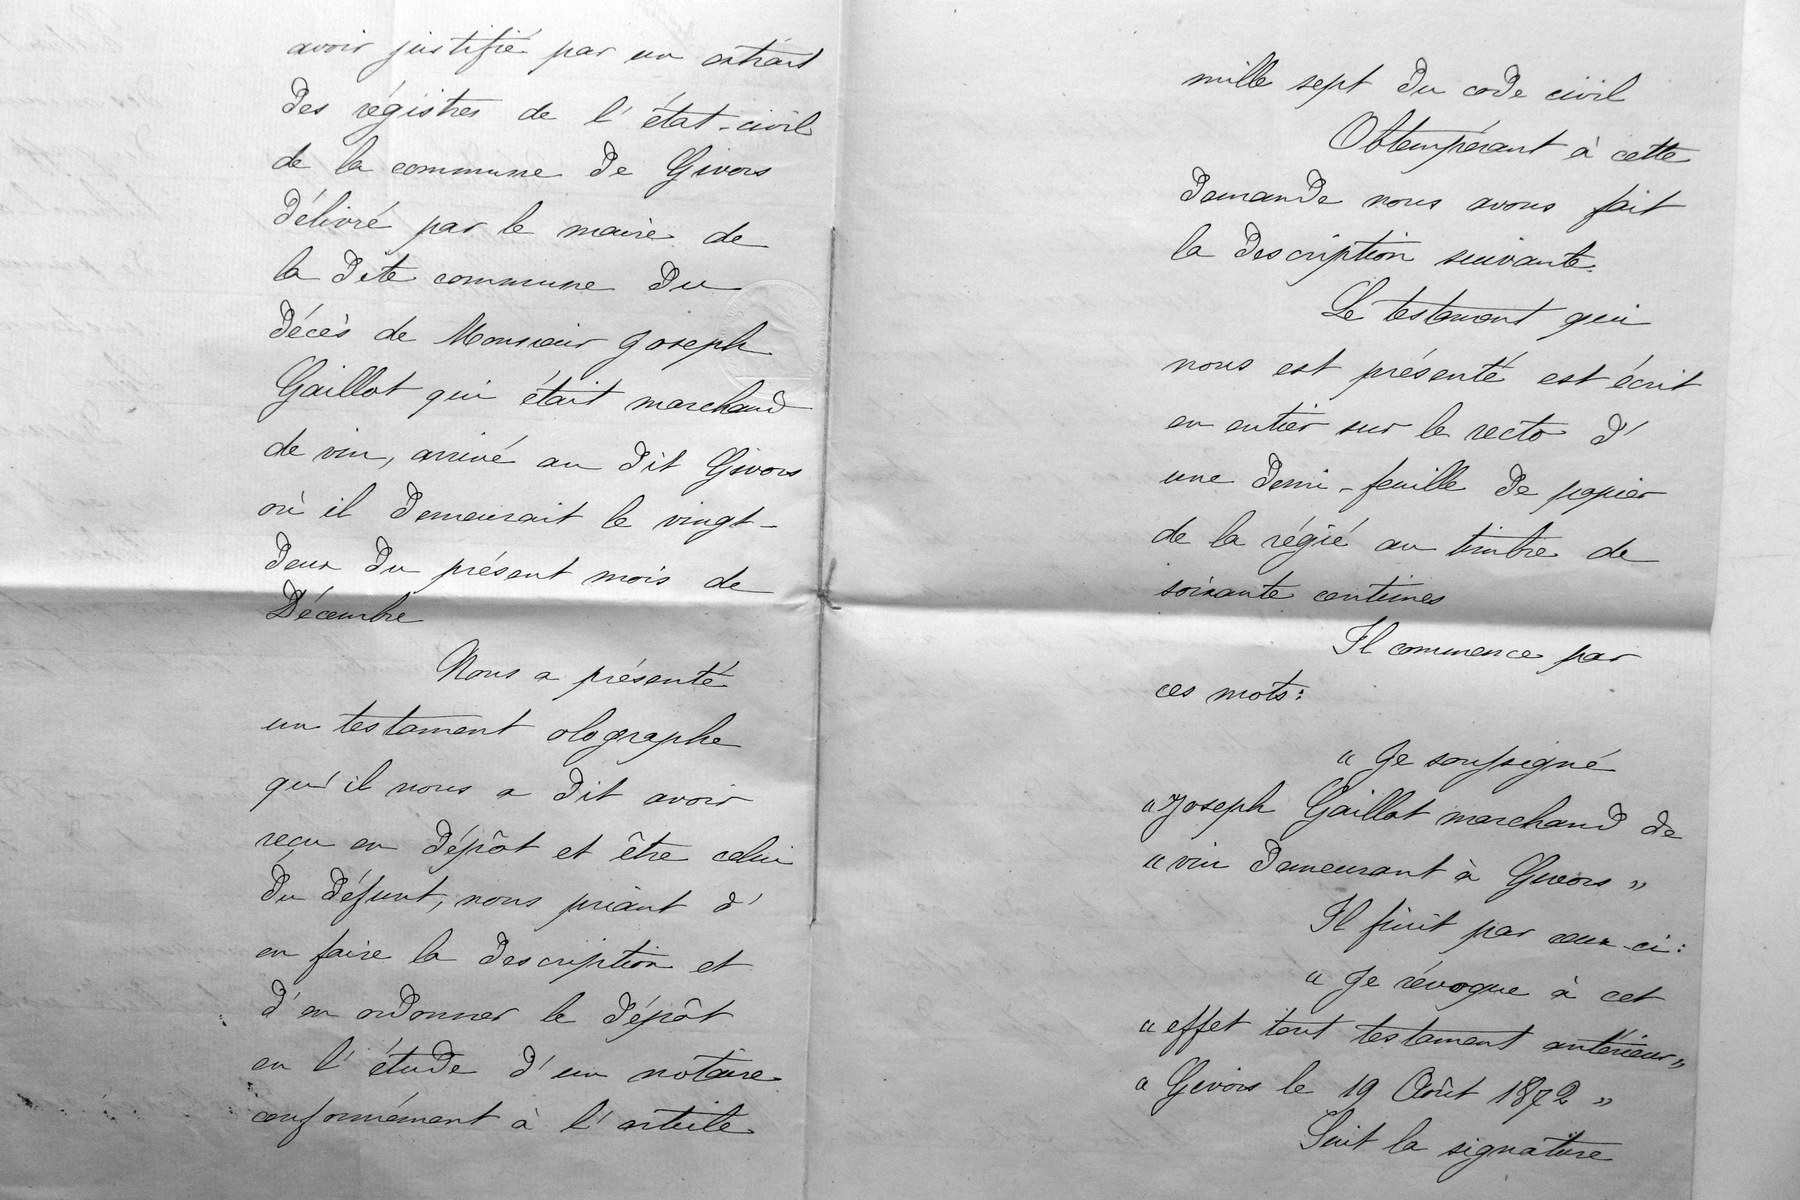 avoir justifié par un extrait
des régistres de l'état-civil
de la commune de Givors
délivré par le maire de
la dite commune du
décès de Monsieur Joseph
Gaillot qui était marchand
de vin, arrivé au dit Givors
où il demeurait le vingt-
deux du présent mois de
Décembre
Nous a présenté
un testament olographe
qu'il nous a dit avoir
reçu en dépôt et être celui
du défunt, nous priant d'
en faire la description et
d'en ordonner le dépôt
en l'étude d'un notaire
conformément à l'article
mille sept du code civil
Obtempérant à cette
demande nous avons fait
la description suivante.
Le testament qui
nous est présenté est écrit
en entier sur le recto d'
une demi-feuille de papier
de la régié au timbre de
soixante centimes
Il commence par
ces mots:
" Je soussigné
" Joseph Gaillot marchand de
" vin demeurant à Givors "
Il finit par ceux-ci:
" Je révoque à cet
" effet tout testament antérieur "
" Givors le 19 Août 1872 "
Suit la signature